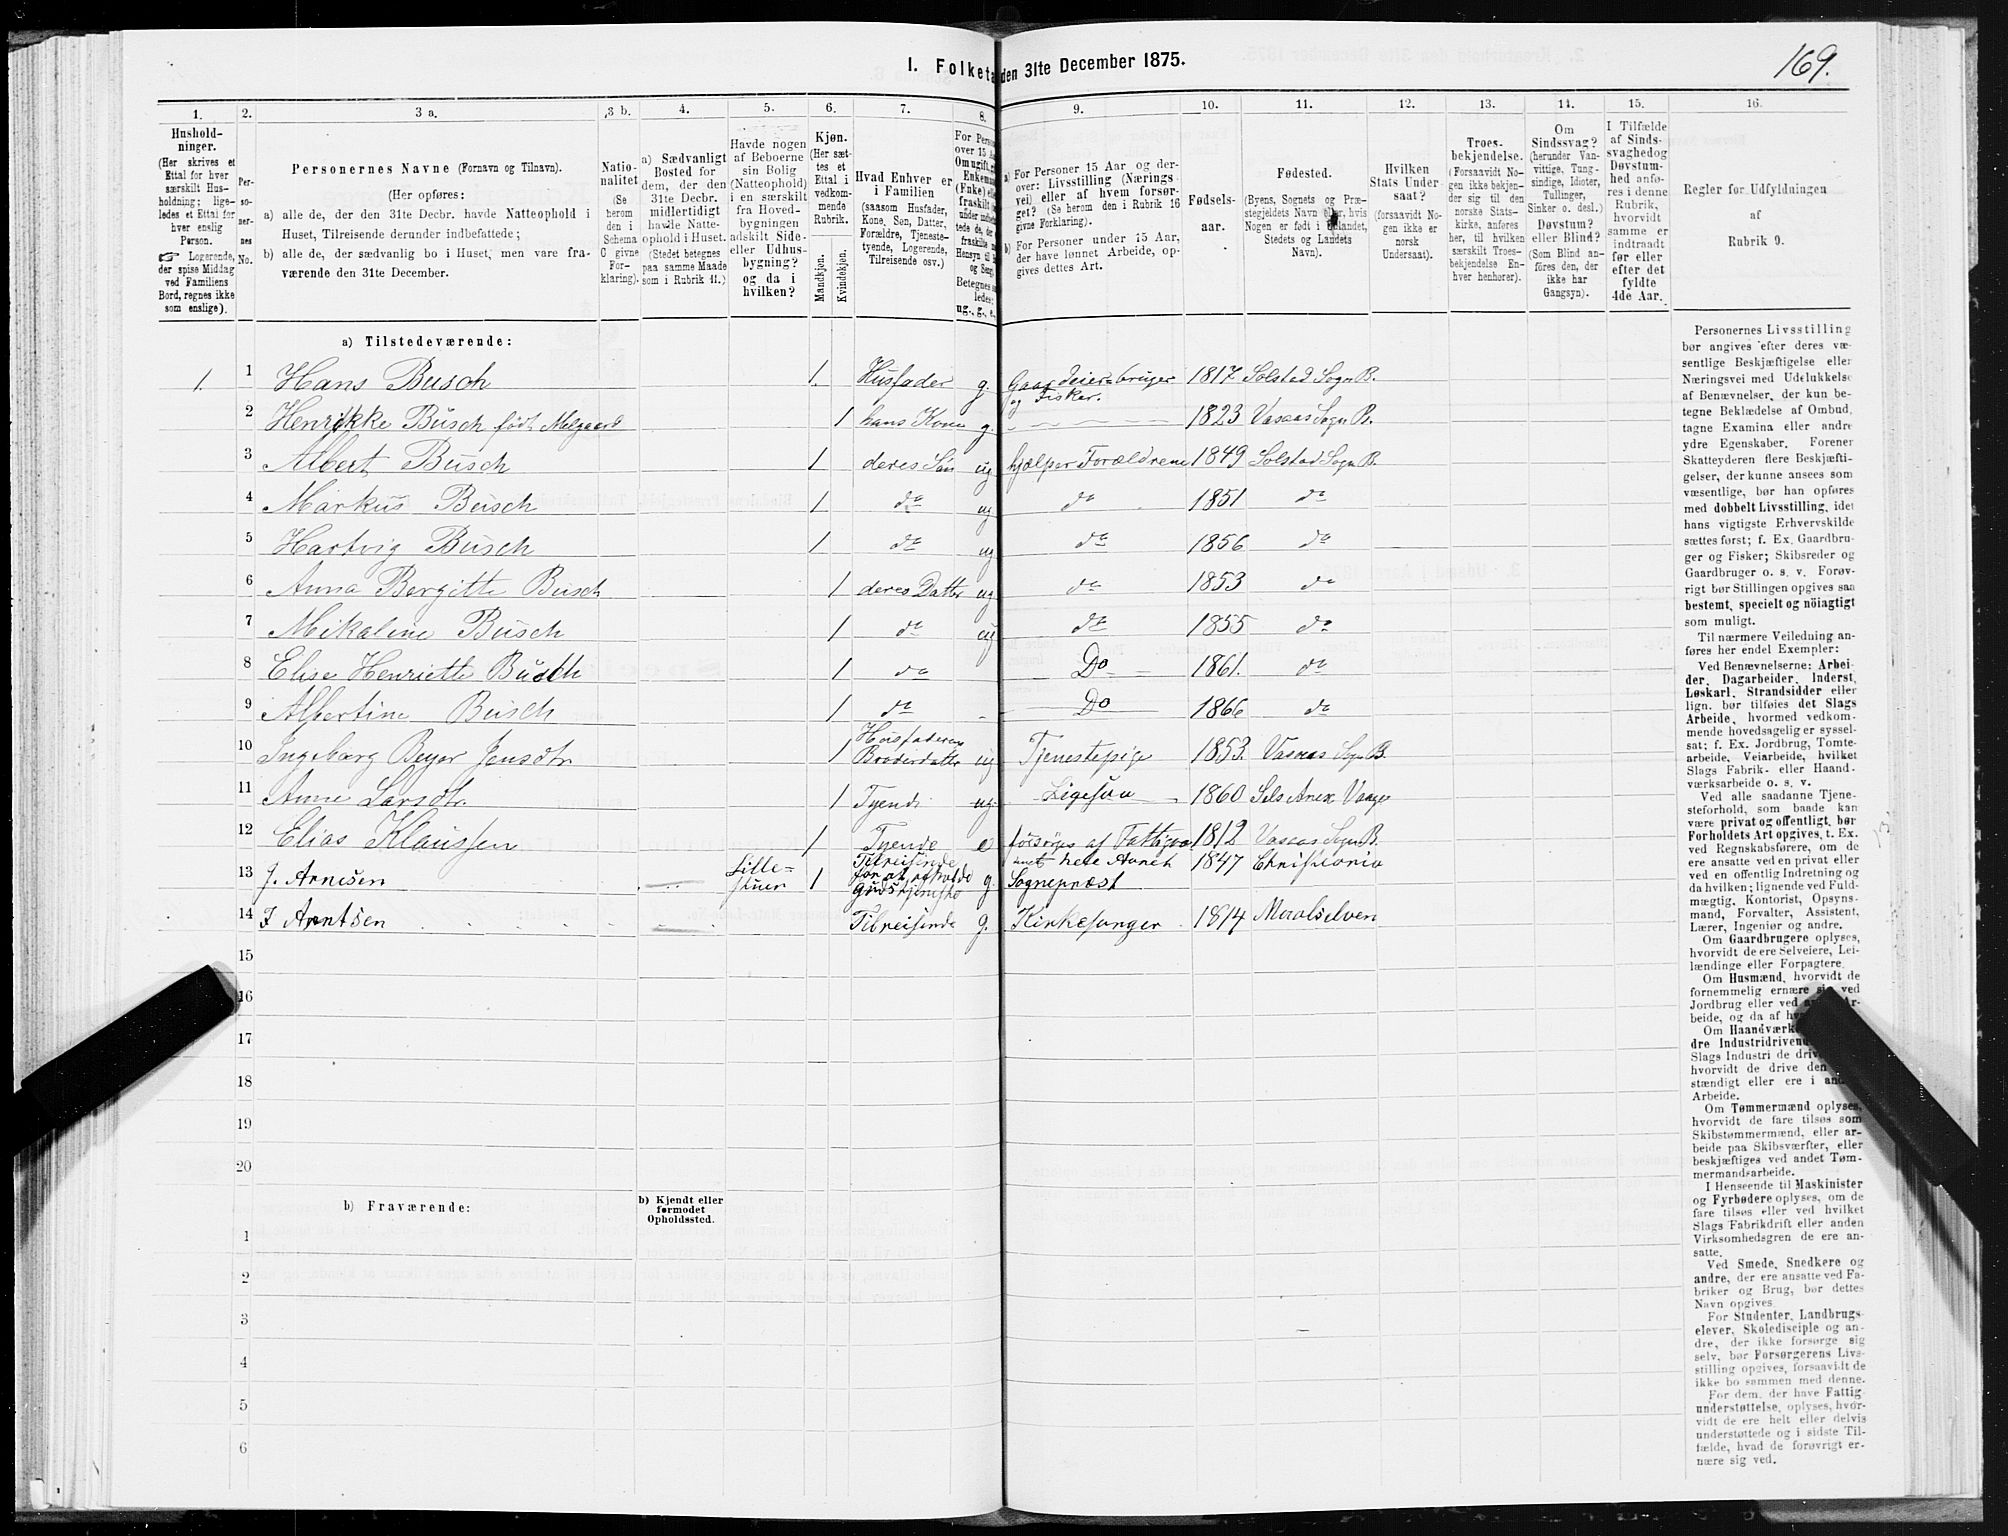 169.
I. Folketa den 31te December 1875.
1. 2. 3 a. 3 b. 4. 5. 6. 7. 8. 9. 10. 11. 12. 13. 14. 15. 16.
Hushold-
ninger.
(Her skrives et
Ettal for hver
særskilt Hus-
holdning; lige-
ledes et Ettal for
hver enslig
Person.
Logerende,
der spise Middag
ved Familiens
Bord, regnes ikke
som enslige).
Per-
so-
ner-
nes
No.
Personernes Navne (Fornavn og Tilnavn).
(Her opføres:
a) alle de, der den 31te Decbr. havde Natteophold i
Huset, Tilreisende derunder indbefattede;
b) alle de, der sædvanlig bo i Huset, men vare fra-
værende den 31te December.
Natio-
nalitet
(Se
herom
den i
Schema
C givne
For-
klaring).
a) Sædvanligt
Bosted for
dem, der den
31te Decbr.
midlertidigt
havde Natte-
ophold i Huset.
(Stedet betegnes
paa samme Maade
som i Rubrik 11.)
Havde nogen
af Beboerne
sin Bolig
(Natteophold)
i en særskilt
fra Hoved-
bygningen
adskilt Side-
eller Udhus-
bygning?
og da i
hvilken?
Kjøn.
(Her sæt-
tes et
Ettal i
vedkom-
mende
Rubrik.
Mandkjøn.
Kvindekjøn.
Hvad Enhver er
i Familien
(saasom Husfader,
Kone, Søn, Datter,
Forældre, Tjeneste-
tyende, Logerende,
Tilreisende osv.)
For Perso
over 15 A
Om ugift, g
Enkeman
(Enke) el
fraskilt
ledes:
ug., g., e.,
a) For Personer 15 Aar og der-
over: Livsstilling (Nærings-
vei) eller af hvem forsør-
get? (Se herom den i Rubrik 16
givne Forklaring).
b) For Personer under 15 Aar,
der have lønnet Arbeide, op-
gives dettes Art.
Fødsels-
aar.
Fødested.
(Byens, Sognets og Præ-
stegjeldets Navn eller, hvis
Nogen er født i Udlandet,
Stedets og Landets
Navn).
Hvilken
Stats Under-
saat?
(forsaavidt No-
gen ikke er
norsk
Undersaat).
Troes-
bekjendelse.
(Forsaavidt No-
gen ikke bekjen-
der sig til den
norske Stats-
kirke, anføres
her, til hvilken
særskilt Troes-
bekjendelse En-
hver henhører).
Om
Sindssvag?
(herunder Van-
vittige, Tung-
sindige, Idioter,
Tullinger,
Sinker o. desl.)
Døvstum?
eller Blind?
(Som Blind an-
føres den, der
ikke har
Gangsyn).
I Tilfælde
af Sinds-
svaghedog
Døvstum-
hed anfø-
res i denne
Rubrik,
hvorvidt
samme er
indtraadt
før eller
efter det
fyldte
4de Aar.
Regler for Udfyldningen
af
Rubrik 9.
a) Tilstedeværende:
1. 1 Hans Busch 1. Husfader g. Gaardeier bruger og Fisker. 1817 Solstad Sogn B.
2 Henrikke Busch født Melgaard 1 hans Kone g. 1823 Vasaas Sogn B.
3 Albert Busch 1 deres Søn ug hjælper Forældrene 1849 Solstad Sogn B.
4 Markus Busch 1 do ug do 1851 do
5 Hartvig Busch 1 do ug do 1856 do
6 Anna Bergitte Busch 1 deres Datter ug do 1853 do
7 Mikaline Busch 1 do ug do 1855 do
8 Elise Henriette Busch 1 do Do 1861. do
9 Albertine Busch 1 do Do 1866 do
10 Ingebærg Beyer Jensdtr. 1 Husfaderens Broderdatter ug Tjenestepige 1853. Vasaas Sogn B.
11 Anne Larsdtr. 1 Tyende ug. Ligesaa 1860 Sels Anex
12 Elias Klaussen 1 Tyende e forsørges af 1812 Vasaas Sogn B.
13 J. Arnesen Lille-stuen 1 Tilreisende for at afholde Gudstjeneste g. Sogneprest 1847 Christiania
14 J Arntsen Tilreisende g. Kirkesanger 1814 Maalselven
15
16
17
18
19
20
b) Fraværende:
b) Kjendt eller
formodet
Opholdssted.
1
2
3
4
5
6
Personernes Livsstilling
bør angives efter deres væ-
sentlige Beskjæftigelse eller
Næringsvei med Udelukkelse
af Benævnelser, der kun be-
tegne Beklædelse af Ombud,
tagne Examina eller andre
ydre Egenskaber. Forener
Skatteyderen flere Beskjæfti-
gelser, der kunne ansees som
væsentlige, bør han opføres
med dobbelt Livsstilling, idet
hans vigtigste Erhvervskilde
sættes først; f. Ex. Gaardbru-
ger og Fisker; Skibsreder og
Gaardbruger o. s. v. Forøv-
rigt bør Stillingen opgives saa
bestemt, specielt og nöiagtigt
som muligt.
Til nærmere Veiledning an-
føres her endel Exempler:
Ved Benævnelserne: Arbei-
der, Dagarbeider, Inderst,
Løskarl, Strandsidder eller
lign. bør tilføies det Slags
Arbeide, hvormed vedkom-
mende hovedsagelig er syssel-
sat; f. Ex. Jordbrug, Tomte-
arbeide, Veiarbeide, hvilket
Slags Fabrik- eller Haand-
værksarbeide o. s. v.
Ved alle saadanne Tjene-
steforhold, som baade kan
være privat og offentligt, bør
Forholdets Art opgives, t. Ex.
ved Regnskabsførere, om de
ere ansatte ved en privat eller
ved en offentlig Indretning og
da hvilken; lignende ved Fuld-
mægtig, Kontorist, Opsyns-
mand, Forvalter, Assistent,
Lærer, Ingeniør og andre.
Om Gaardbrugere oplyses,
hvorvidt de ere Selveiere, Lei-
lændinge eller Forpagtere.
Om Husmænd, hvorvidt de
fornemmelig ernære sig ved
Jordbrug eller ved Ar-
beide, og da af
Om Haandværk
dre Industridrivend
Slags Industri de driv
hvorvidt de drive den
stændigt eller ere i
Arbeide.
Om Tømmermænd oplyses,
hvorvidt de fare tilsøs som
Skibstømmermænd, eller ar-
beide paa Skibsværfter, eller
beskjæftiges ved andet Tøm-
mermandsarbeide.
I Henseende til Maskinister
og Fyrbødere oplyses, om de
fare tilsøs eller ved hvilket
Slags Fabrikdrift eller anden
Virksomhedsgren de ere an-
satte.
Ved Smede, Snedkere og
andre, der ere ansatte ved Fa-
briker og Brug, bør dettes
Navn opgives.
For Studenter, Landbrugs-
elever, Skoledisciple og an-
dre, der ikke forsørge sig
selv, bør Forsørgerens Livs-
stilling opgives, forsaavidt de
ikke bo sammen med denne.
For dem, der have Fattig-
understøttelse, oplyses, hvor-
vidt de ere helt eller delvis
understøttede og i sidste Til-
fælde, hvad de forøvrigt er-
nære sig ved.